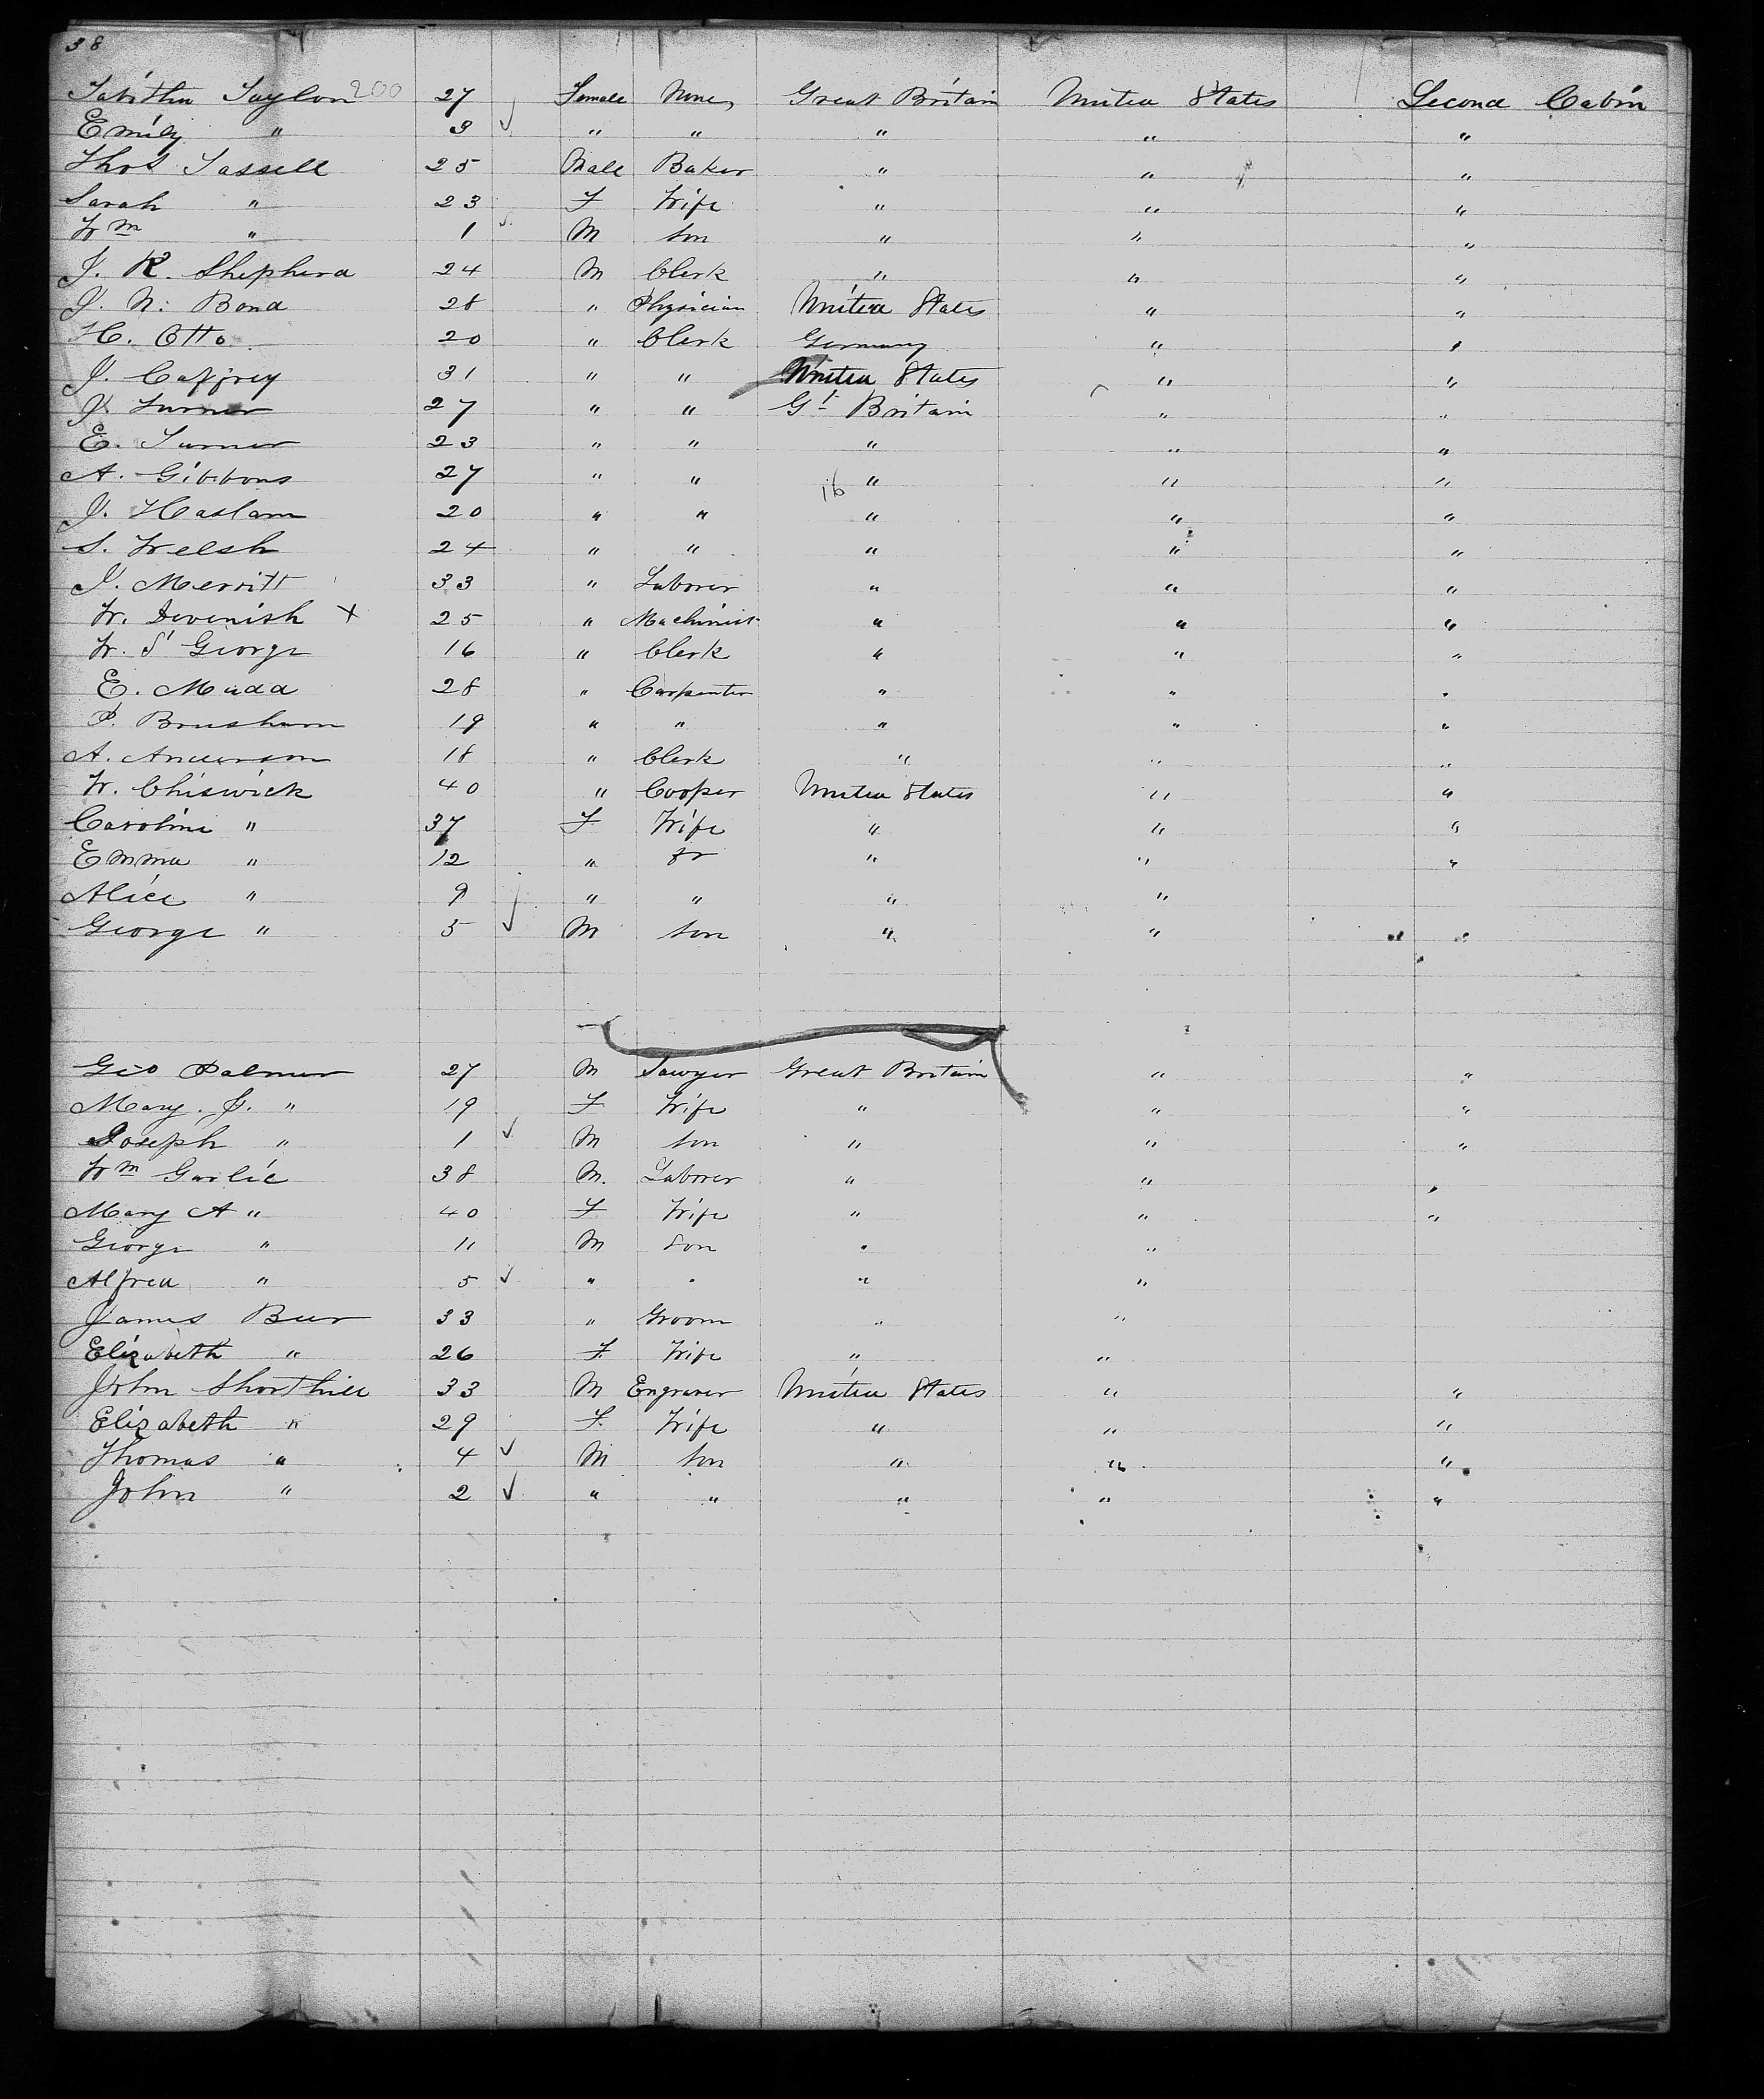 38
Tabitha Taylor 200 27 Female None Great Britain United States Second Cabin
Emily " 3 " " " " "
Thos Tassell 25 Male Baker " " "
Sarah " 23 F Wife " " "
Wm " 1 M Son " " "
J. R. Shepherd 24 M Clerk " " "
J. N. Bond 28 " Physician United States " "
H. Otto 20 " Clerk Germany " "
J. Caffrey 31 " " United States " "
J. Turner 27 " " Gt Britain " "
E. Turner 23 " " " " "
A. Gibbons 27 " " 16 " " "
J. Haslam 20 " " " " "
S. Welsh 24 " " " " "
J. Merritt 33 " Laborer " " "
W. Devenish X 25 " Machinist " " "
W. St George 16 " Clerk " " "
E. Mudd 28 " Carpenter " " "
P. Brusham 19 " " " " "
A. Anderson 18 " Clerk " " "
W. Chiswick 40 " Cooper United States " "
Caroline " 37 F Wife " " "
Emma " 12 " " " "
Alice " 9 " " " "
George " 5 M Son " " "
Geo Palmer 27 M Sawyer Great Britain " "
Mary. J. " 19 F Wife " " "
Joseph " 1 M Son " " "
Wm Garlic 38 M. Laborer " " "
Mary A " 40 F Wife " " "
George " 11 M Son " "
Alfred " 5 " " " "
James Burr 33 " Groom " "
Elizabeth " 26 F Wife " "
John Shorthill 33 M Engraver United States " "
Elizabeth " 29 F Wife " " "
Thomas " 4 M Son " " "
John " 2 " " " " "